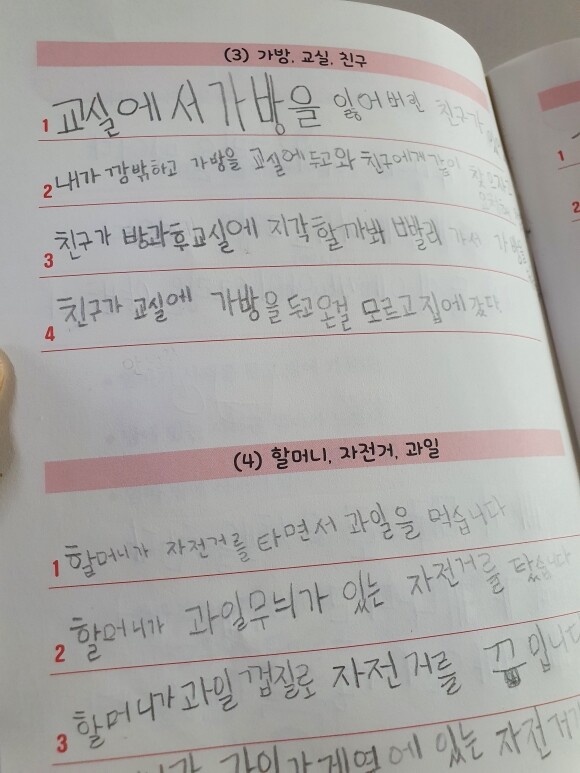 (3) 가방, 교실, 친구
1 교실에서 가방을 잃어버린 친구가
2 내가 깜밖하고 가방을 교실에 두고와 친구에게 같이
3 친구가 방과후교실에 지각할까봐 빠빨리 가서
4 친구가 교실에 가방을 두고온걸 모르고 집에 갔다
(4) 할머니, 자전거, 과일
1 할머니가 자전거를 타면서 과일을 먹습니다
2 할머니가 과일무늬가 있는 자전거를 탔습니다
3 할머니가 과일 껍질로 자전거를 꾸밉니다
에 있는 자전거가
1
2